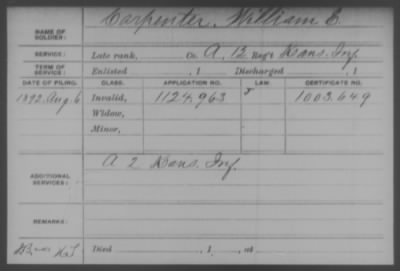 Carpenter, William E.
NAME OF SOLDIER:
SERVICE: Late rank, Co. A, 12 Reg't Kans. Inf.
TERM OF SERVICE: Enlisted , 1 Discharged , 1
DATE OF FILING. CLASS. APPLICATION NO. LAW. CERTIFICATE NO.
1892, Aug. 6 Invalid, 1124.963 1003.649
Widow,
Minor,
A 2 Kans. Inf.
ADDITIONAL SERVICES:
REMARKS:
Died , 1 , at